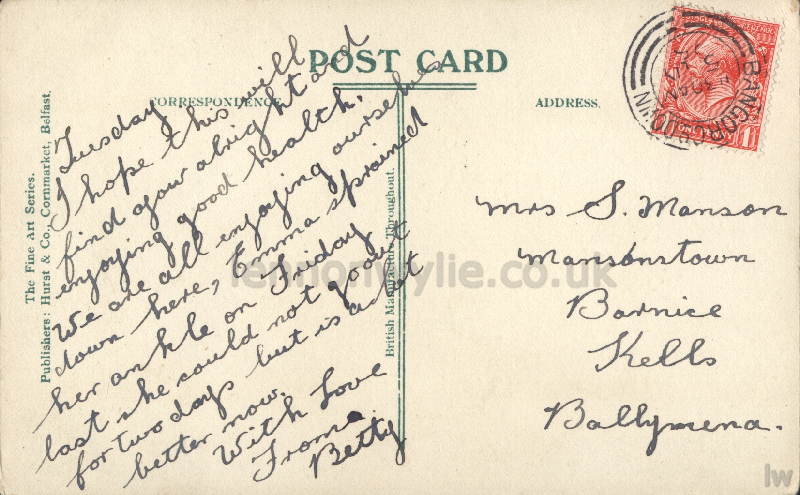 POST CARD
CORRESPONDENCE.
ADDRESS.
The Fine Art Series.
Publishers: Hurst & Co., Cornmarket, Belfast.
British Manufacture Throughout.
Tuesday
I hope this will
find you alright and
enjoying good health.
We are all enjoying ourselves
down here, Emma sprained
her ankle on Friday
last she could not go out
for two days but is a lot
better now.
With Love
From
Betty
Mrs S. Manson
Mansonstown
Barnice
Kells
Ballymena.
BANGOR CO. DOWN
ONE PENNY
lennonwylie.co.uk
lw